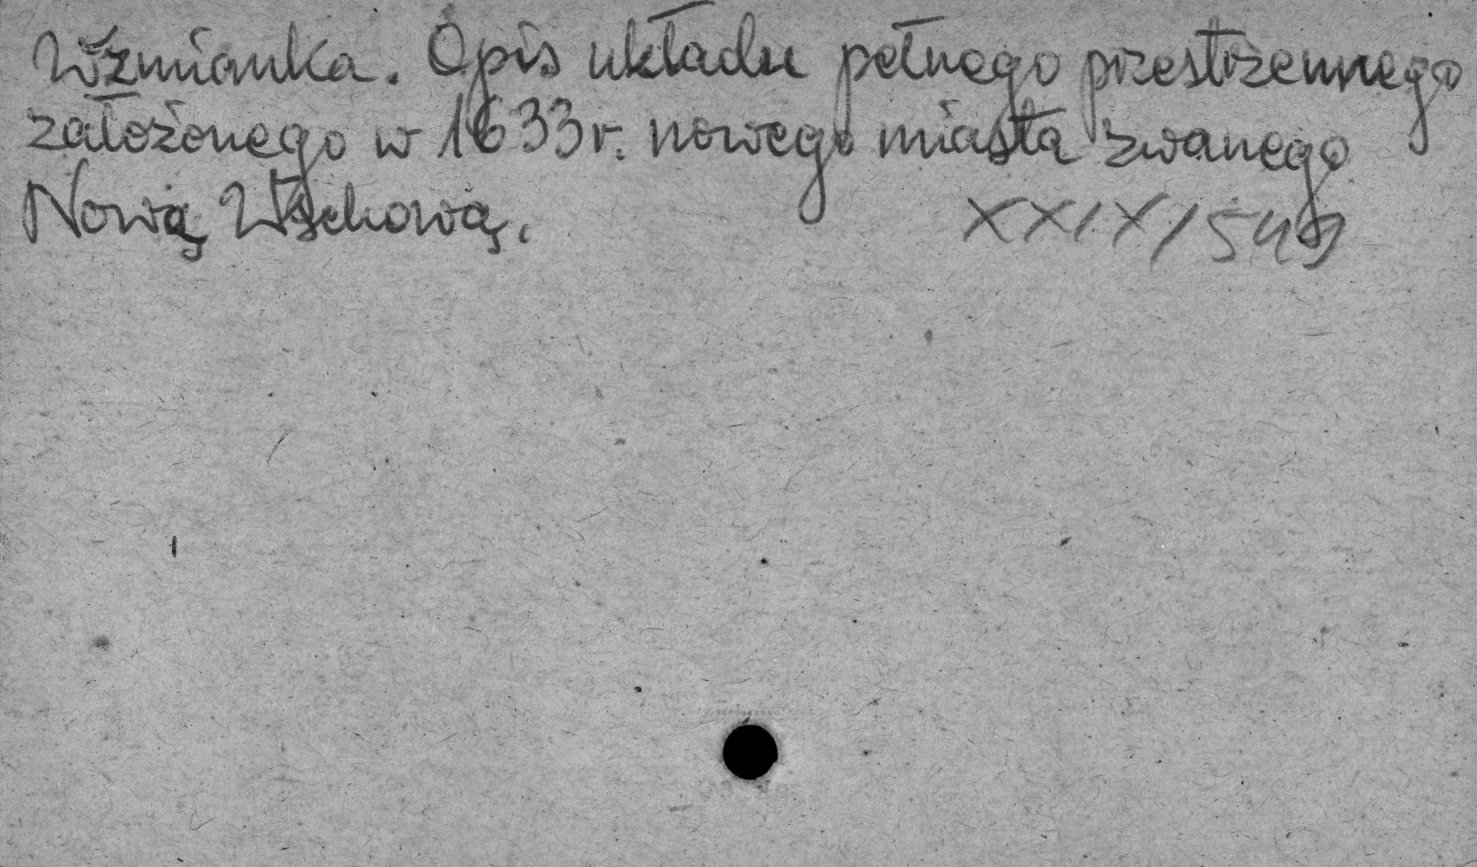 Wzmianka. Opis układu pełnego przestrzennego
założonego w 1633 r. nowego miasta zwanego
Nową Wschową.
XXIX/549